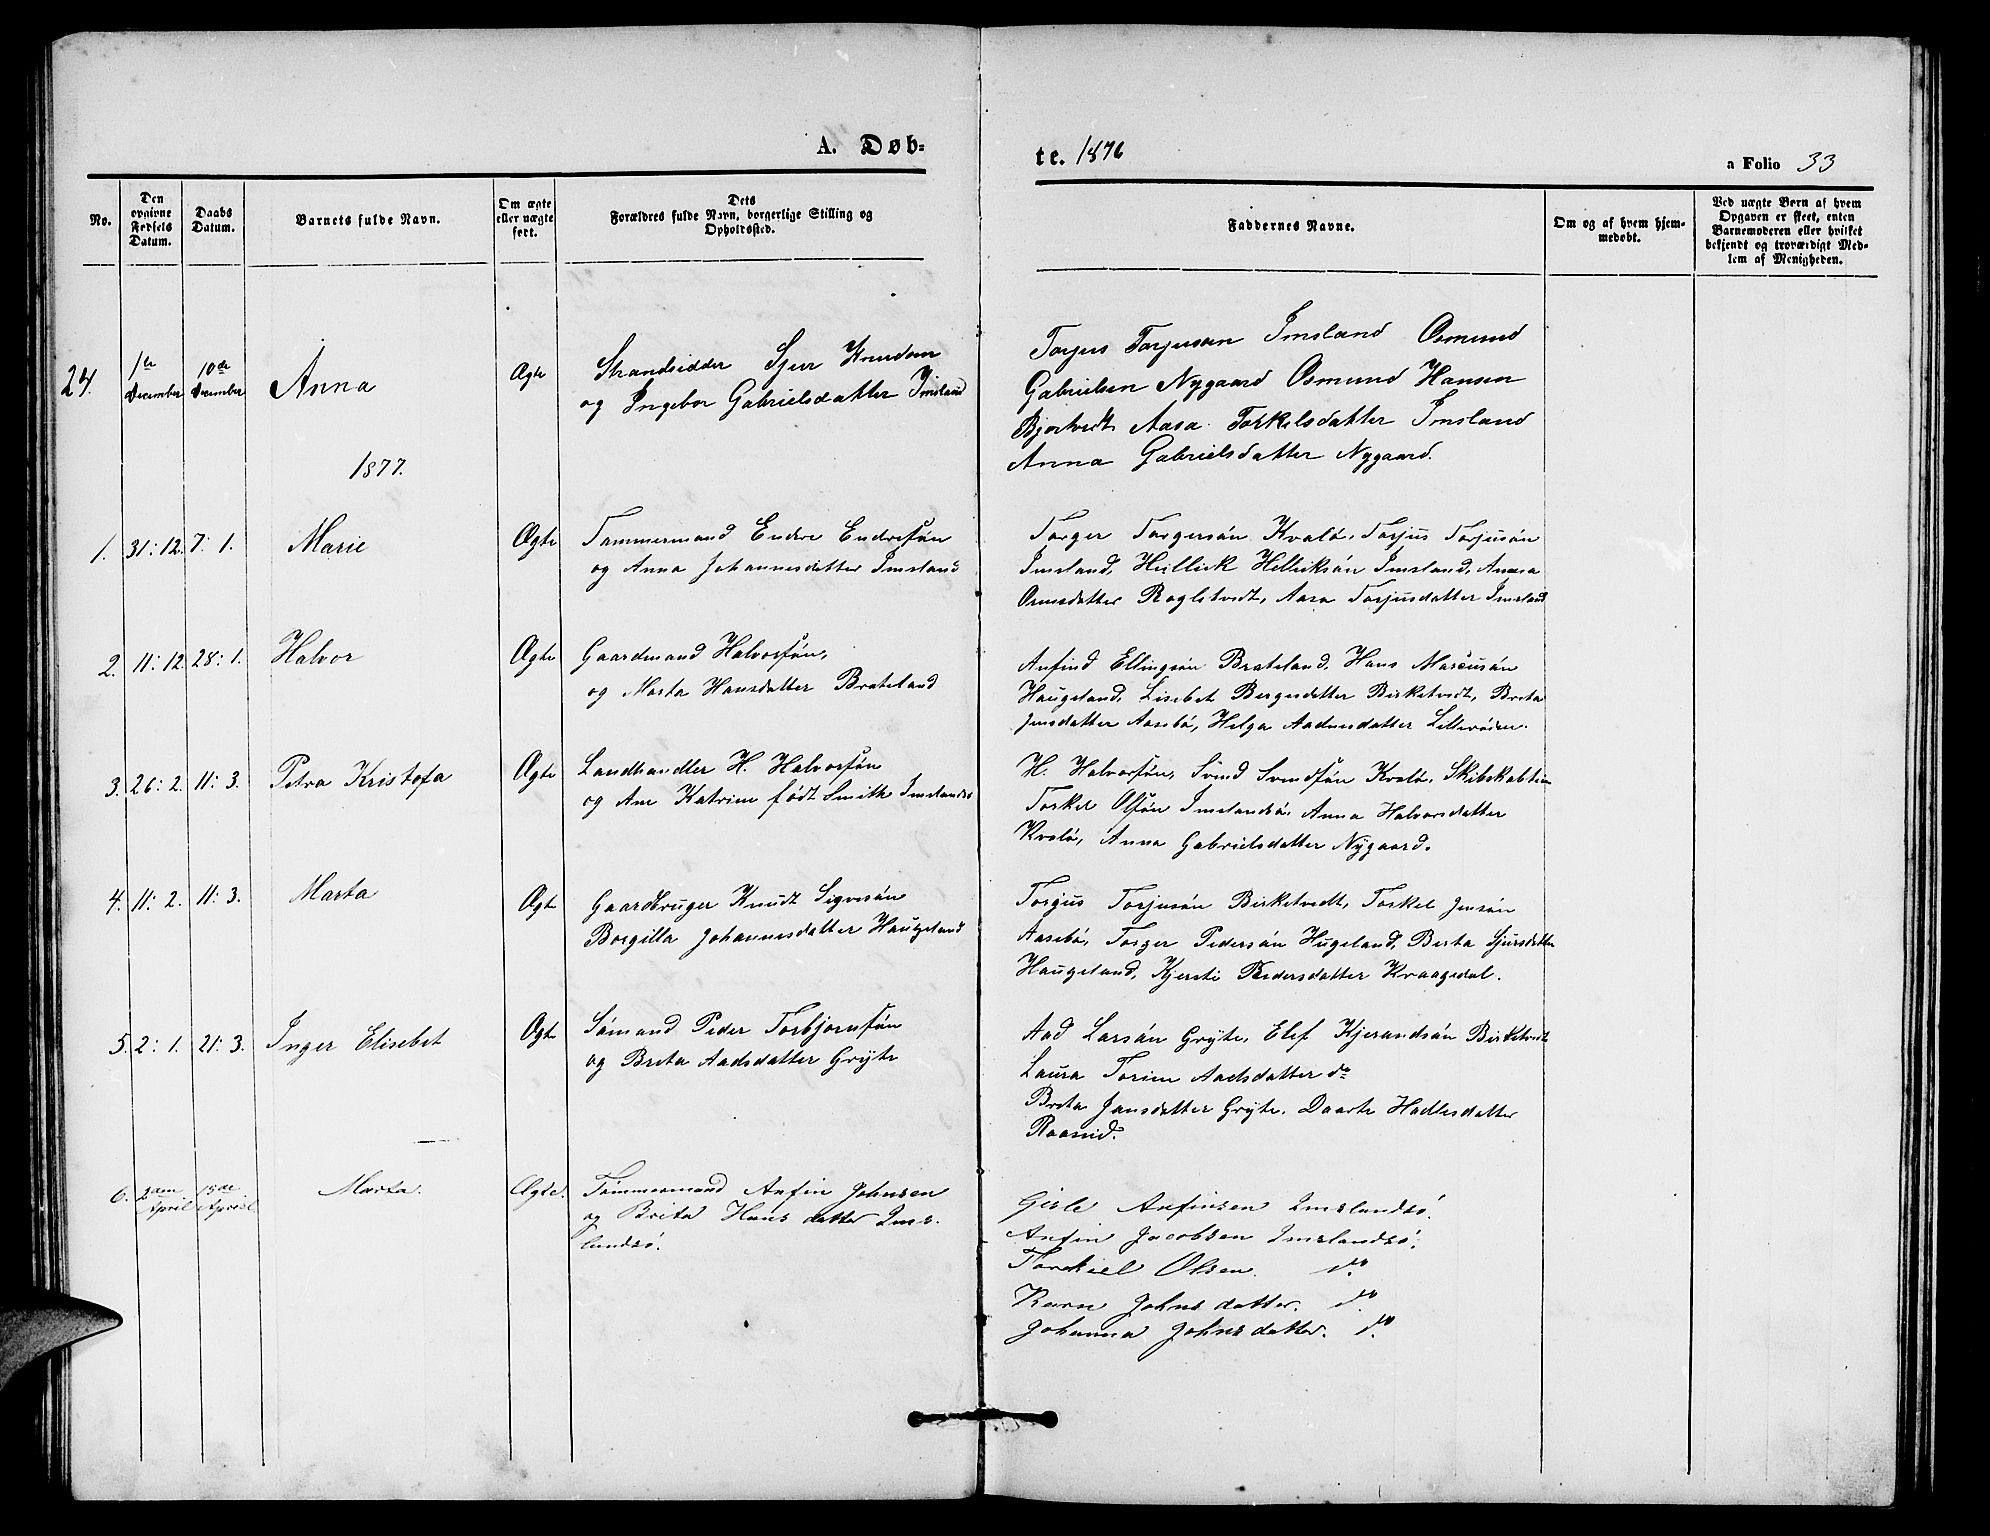 A. Døb-
te. 1876
a Folio 33
No.
Den opgivne Fødsels Datum.
Daabs Datum.
Barnets fulde Navn.
Om ægte eller uægte født.
Dets Forældres fulde Navn, borgerlige Stilling og Opholdssted.
Faddernes Navne.
Om og af hvem hjemmedøbt.
Ved uægte Børn af hvem Opgaven er skeet, enten Barnemoderen eller hvilket bekjendt og troværdigt Medlem af Menigheden.
24. 1te December 10de December Anna Ægte
Strandsidder Sjur Knudsen
og Ingebor Gabrielsdatter Imsland
Torjus Torjusen Imsland Osmund
Gabrielsen Nygaard Osmund Hansen
Bjortvedt Aasa Torkelsdatter Imsland
Anna Gabrielsdatter Nygaard.
1877.
1. 31:12. 7:1. Marie Ægte
Tømmermand Endre Endresøn
og Anna Johannesdatter Imsland
Torger Torgersøn Kvalø, Torjus Torjusøn
Imsland, Hellick Helliksøn Imsland, Anna
Ormsdatter Rogletvedt, Aasa Torjusdatter Imsland
2. 11:12 28:1. Halvor Ægte
Gaardmand Halvorsøn,
og Marta Hansdatter Brateland
Anfind Ellingsøn Brateland. Hans Marcusøn
Haugeland, Lisebet Bergesdatter Birketvedt, Breta
Jensdatter Aasebø, Helga Aadnesdatter
3. 26:2. 11:3. Petra Kristofa Ægte
Landhandler H. Halvorsøn
og Ane Katrine født Smith Imslandsø
H. Halvorsøn, Svend Svendsøn Kvalø, Skibskabtein
Torkel Olsøn Imslandsø, Anna Halvorsdatter
Kvalø, Anna Gabrielsdatter Nygaard.
4. 11:2. 11:3. Marta Ægte
Gaardbruger Knudt Sigvesøn
Borgilla Johannesdatter Haugeland
Torgus Torjusøn Birketvedt, Torkel Jensøn
Aasebø, Torger Pedersøn Hugeland, Berta Sjursdatter
Haugeland, Kjersti Pedersdatter Kraagedal.
5. 2:1. 21:3. Inger Elisebet Ægte
Sømand Peder Torbjørnsøn
og Breta Aadsdatter Gryte
Aad Larsøn Gryte, Elef Kjerandsøn Birketvedt
Laura Torine Aadsdatter do
Breta Jansdatter Gryte, Daarte Hadlesdatter
6. 2den April 15de April Marta. Ægte.
Tømmermand Anfin Johnsen
og Brita Hansdatter Ims-
landsø.
Gisle Anfinsen Imslandsø.
Anfin Jacobsen Imslandsø.
Torkiel Olsen. do.
Karn Johnsdatter. do.
Johanna Johnsdatter. do.